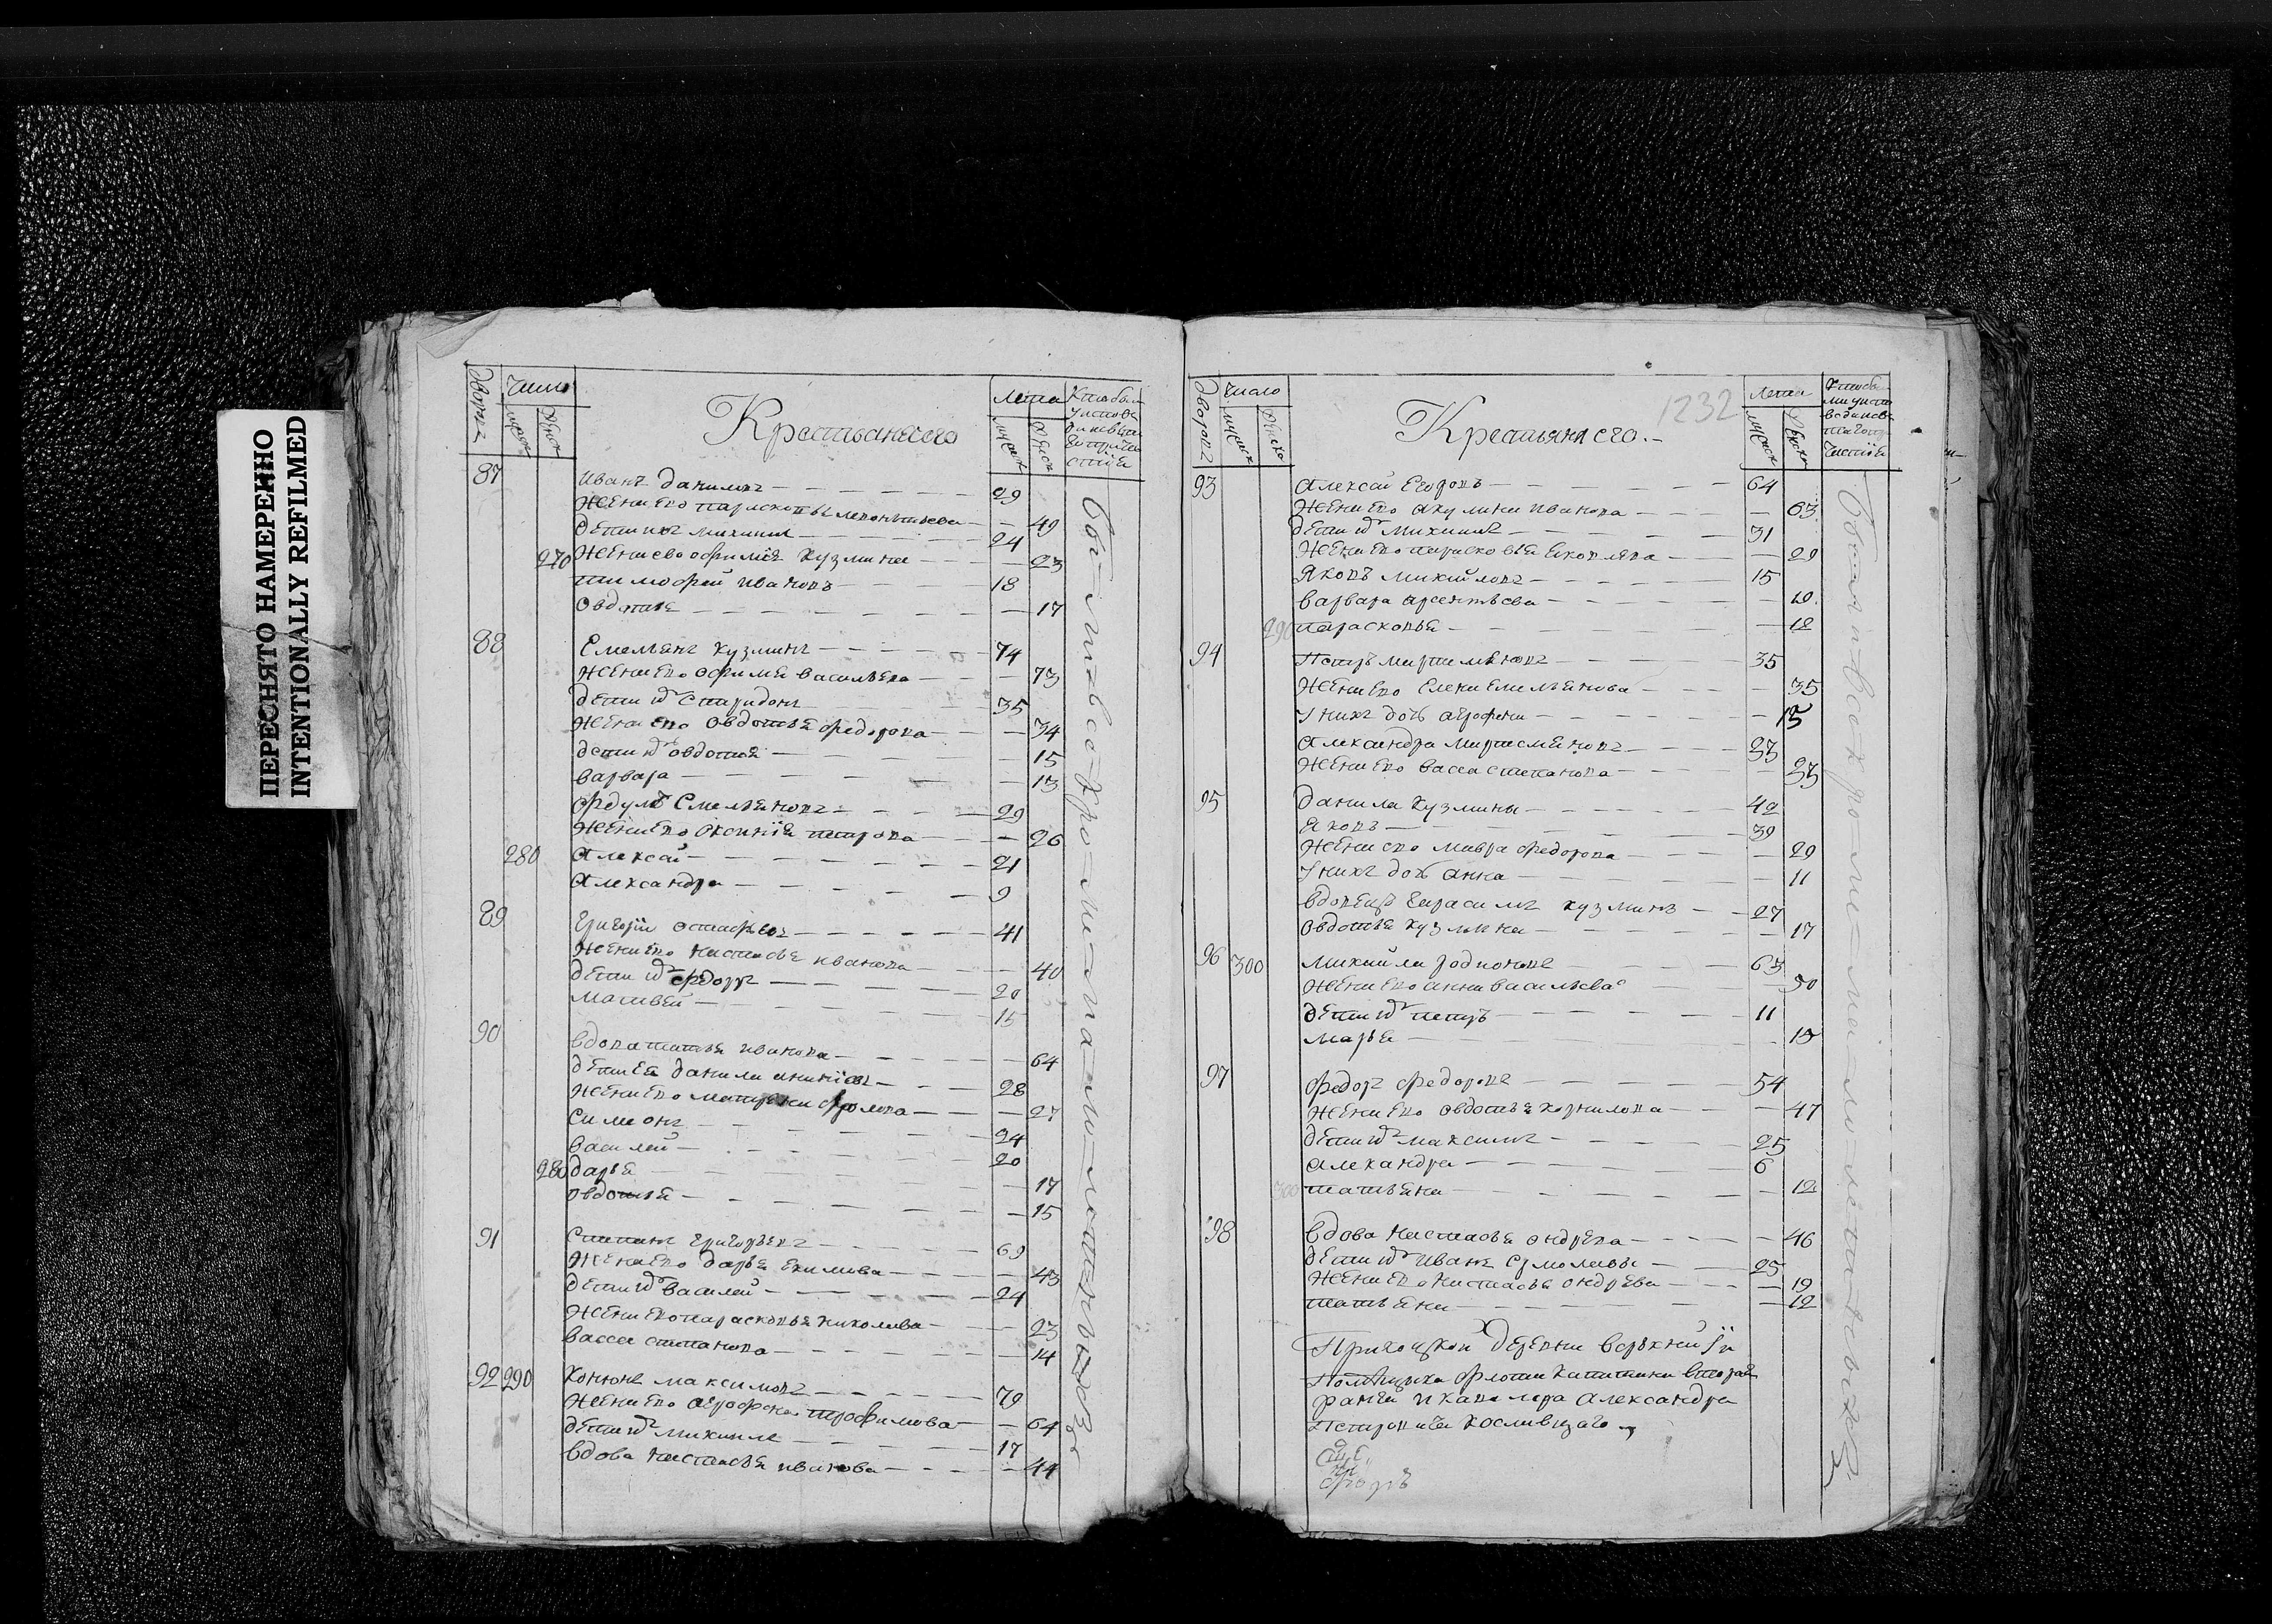 ПЕРЕСНЯТО НАМЕРЕННО
INTENTIONALLY REFILMED
дворовъ Число Крестьяня его Лета
мужск женск мужск женск
87 иванъ даниловъ 29
жена ево 49
дети их михаила 24
270 жена ево офимия кузмина 23
тимофей ивановъ 18
овдотья 17
88 Емельянъ кузминъ 74
жена ево офимья васильева 73
дети их спиридонъ 35
жена ево овдотья федорова 34
дети их овдотья 15
варвара 13
федулъ Емельяновъ 29
жена ево оксиния петрова 26
280 алексей 21
александра 9
89 григорий остафьевъ 41
жена ево настасья иванова 40
дети их федоръ 20
матвей 15
90 вдова татьяна иванова 64
дети ея данила 28
жена ево матрена фролова 27
симионъ 24
василей 20
280 дарья 17
овдотья 15
91 степанъ григорьевъ 69
жена ево дарья екимова 43
дети их василей 24
жена ево парасковья николаева 23
васса степанова 14
92 290 кононъ максимовъ 79
жена ево аграфена трофимова 64
дети их михаила 17
вдова настасья иванова 44
дворовъ Число Крестьяня его 1232 Лета
мужск женск мужск женск
93 алексей Егоровъ 64
жена ево акулина иванова 63
дети их михаила 31
жена ево парасковья яковлева 29
яковъ михайловъ 15
варвара арсентьева 10
290 парасковья 18
94 Петръ мартемьяновъ 35
жена ево Елена Емельянова 35
У них дочь аграфена 15
александра мартемьяновъ 33
жена ево васса степанова 33
95 данила кузмины 42
яковъ 39
жена ево мавра федорова 29
У них дочь анна 11
вдовецъ герасимъ кузминъ 27
овдотья кузмина 17
96 300 михаила родионовъ 63
жена ево анна васильева 50
дети их петръ 11
марья 13
97 федоръ федоровъ 54
жена ево овдотья корнилова 47
дети их максимъ 25
александра 6
300 татьяна 12
98 вдова настасья ондрева 46
дети их иванъ Ермолаевъ 25
жена ево настасья ондрева 19
татьяна 12
Приходской деревни верхней
Помещика флота капитана втораго
ранга и кавалера Александра
Петровича